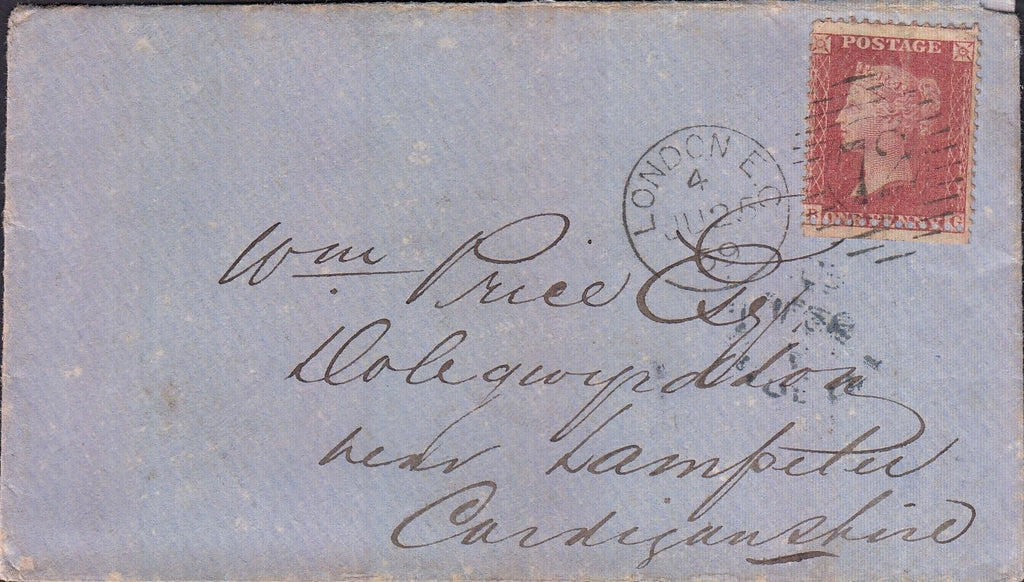 POSTAGE
ONE PENNY G
LONDON E.C
4
JU 25
Wm. Price Esq
Dolegwyrddon
near Lampeter
Cardiganshire